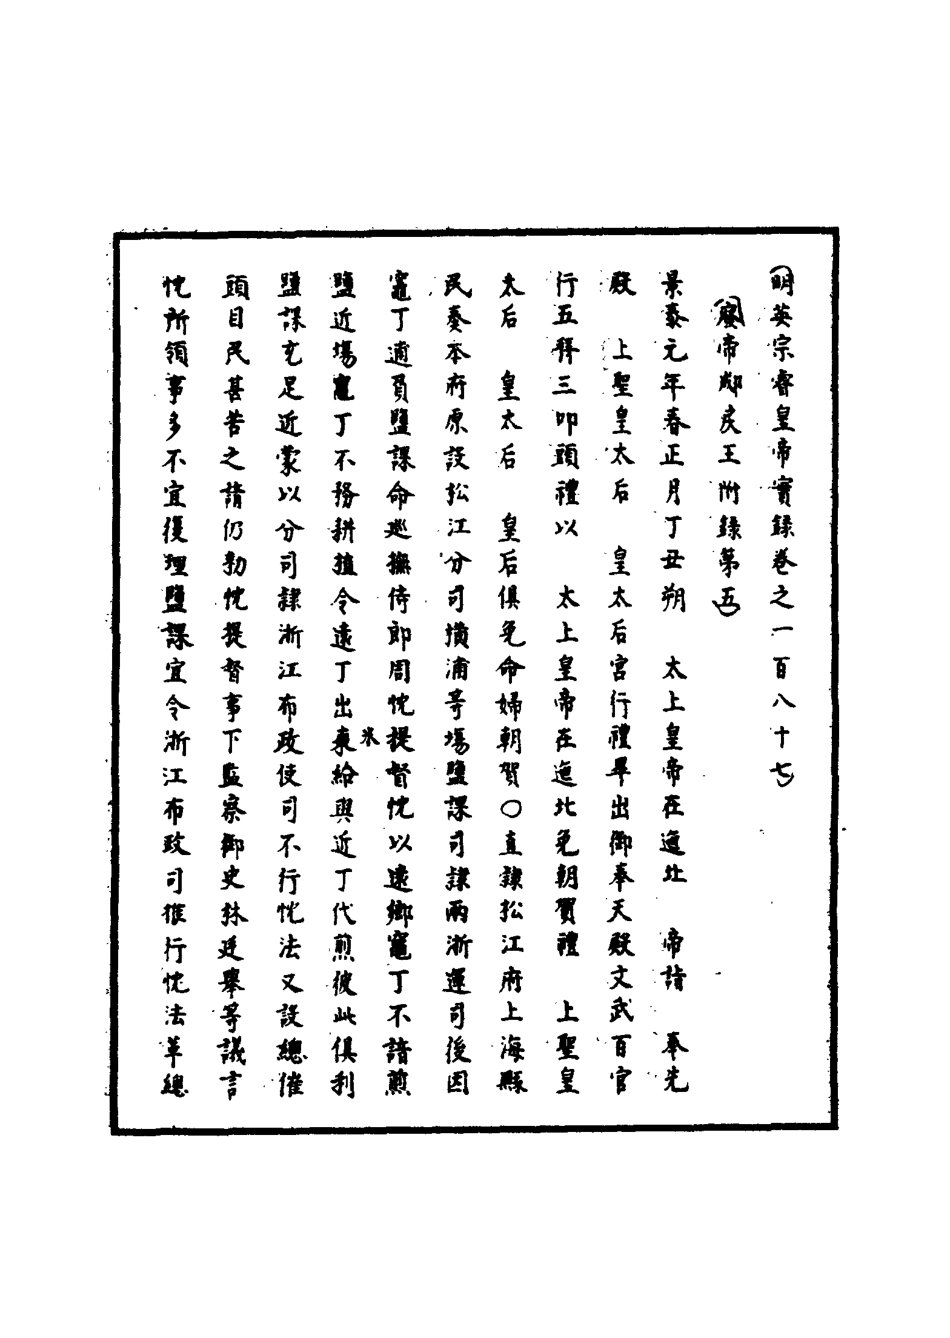 明英宗睿皇帝實錄卷之一百八十七
廢帝郕戾王附錄第五
景泰元年春正月丁丑朔　太上皇帝在迤北　帝詣　奉先
殿　上聖皇太后　皇太后宮行禮畢出御奉天殿文武百官
行五拜三叩頭禮以　太上皇帝在迤北免朝賀禮　上聖皇
太后　皇太后　皇后俱免命婦朝賀○直隸松江府上海縣
民奏本府原設松江分司橫浦等場鹽課司隸兩浙運司後因
竈丁逋負鹽課命巡撫侍郎周忱提督忱以遠鄉竈丁不諳煎
鹽近場竈丁不務耕種令遠丁出米給與近丁代煎彼此俱利
鹽課充足近蒙以分司隸浙江布政使司不行忱法又設總催
頭目民甚苦之請仍勑忱提督事下監察御史林廷舉等議言
忱所領事多不宜復理鹽課宜令浙江布政司推行忱法革總